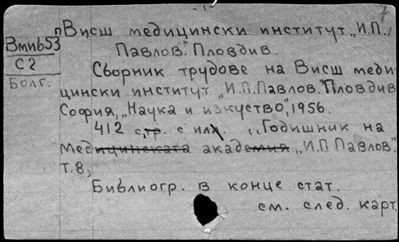 Висш медицински институт „И.П.
Вмиb53
Павлов". Пловдив.
С2
Сборник трудове на Висш меди-
Болг.
цински институт „И.П.Павлов." Пловдив
София, „Наука и изкуство", 1956.
412 с. с ил. „Годишник на
Медицинската академия „И.П Павлов."
т.8,
Библиогр. в конце стат.
см. след. карт.